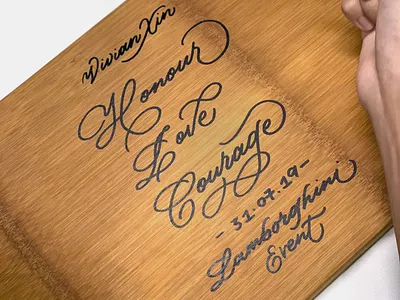 Vivian Xin
Honour
Love
Courage
- 31.07.19 -
Lamborghini
Event